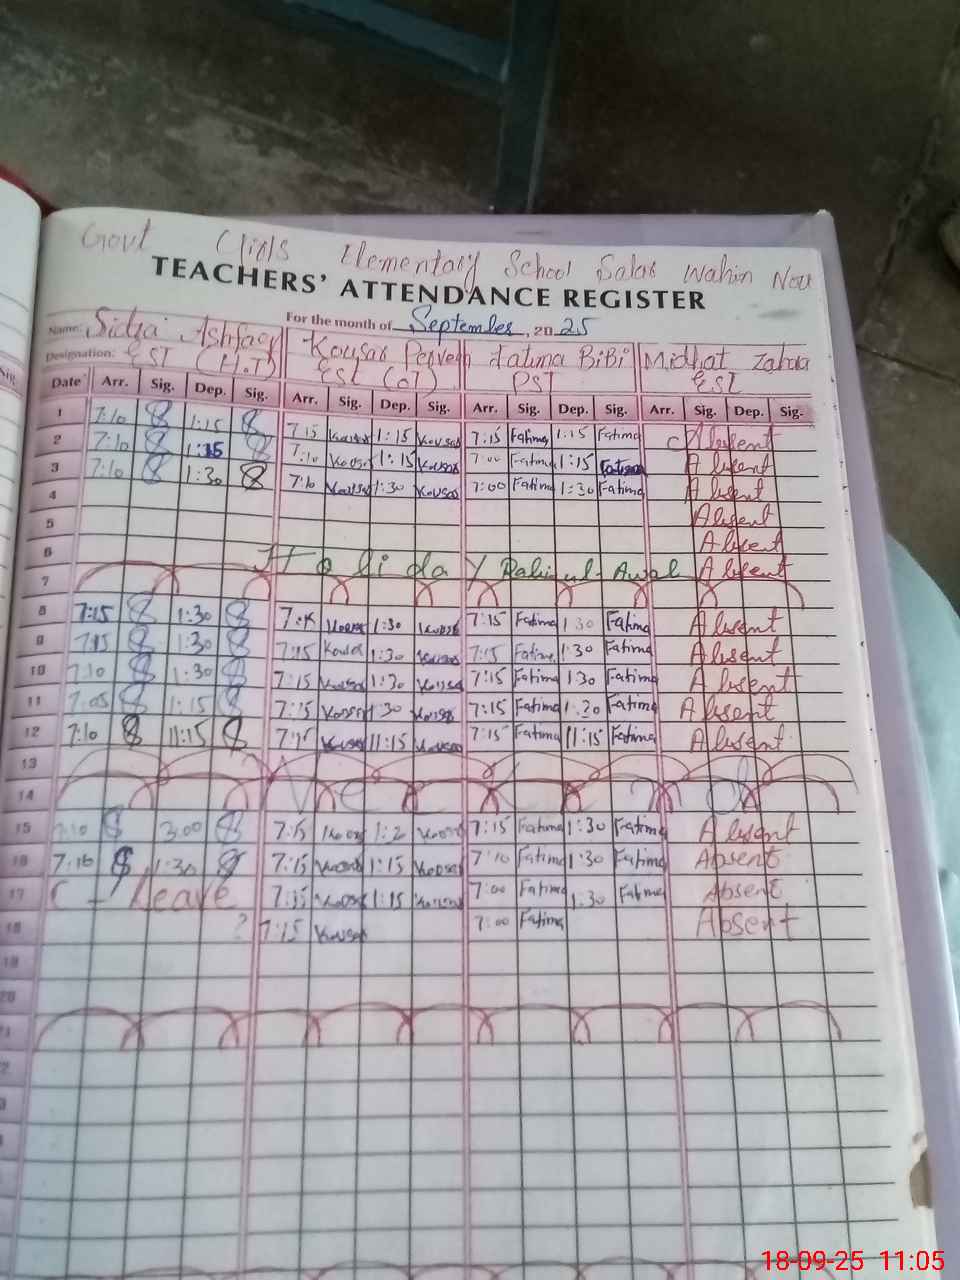 Govt Girls Elementary School Salar Wahin Nou
TEACHERS' ATTENDANCE REGISTER
Name: Sidra Ashfaq For the month of September, 2025
Designation: EST (H.T) Kousar Perveen Fatima BiBi Midhat Zahra
EST (OT) PST EST
Date Arr. Sig. Dep. Sig. Arr. Sig. Dep. Sig. Arr. Sig. Dep. Sig. Arr. Sig. Dep. Sig.
1 7:10 1:15 7:15 Kousar 1:15 Kousar 7:15 Fatima 1:15 Fatima Absent
2 7:10 1:15 7:10 Kousar 1:15 Kousar 7:00 Fatima 1:15 Fatima Absent
3 7:10 1:30 7:10 Kousar 1:30 Kousar 7:00 Fatima 1:30 Fatima Absent
4 Absent
5 Absent
6 Holiday Rabi-ul-Awal Absent
7
8 7:15 1:30 7:15 Kousar 1:30 Kousar 7:15 Fatima 1:30 Fatima Absent
9 7:15 1:30 7:15 Kousar 1:30 Kousar 7:15 Fatima 1:30 Fatima Absent
10 7:10 1:30 7:15 Kousar 1:30 Kousar 7:15 Fatima 1:30 Fatima Absent
11 7:05 1:15 7:15 Kousar 1:30 Kousar 7:15 Fatima 1:30 Fatima Absent
12 7:10 11:15 7:15 Kousar 11:15 Kousar 7:15 Fatima 11:15 Fatima Absent
13
14
15 7:10 3:00 7:15 Kousar Kousar 7:15 Fatima 1:30 Fatima Absent
16 7:10 1:30 7:15 Kousar 1:15 Kousar 7:10 Fatima 1:30 Fatima Absent
17 C - leave 7:15 Kousar 1:15 Kousar 7:00 Fatima 1:30 Fatima Absent
18 ? 7:15 Kousar 7:00 Fatima Absent
19
20
18-09-25 11:05